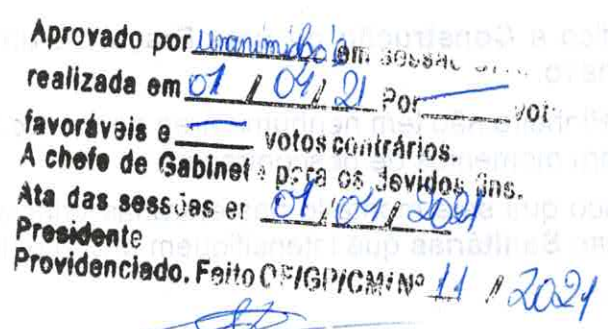 Aprovado por unanimidade em sessão
realizada em 01 / 04 / 21 Por — vot.
favoráveis e — votos contrários.
A chefe de Gabinet para os devidos fins.
Ata das sessões em 01 / 04 / 2021
Presidente
Providenciado. Feito OF/GP/CM/Nº 11 / 2021